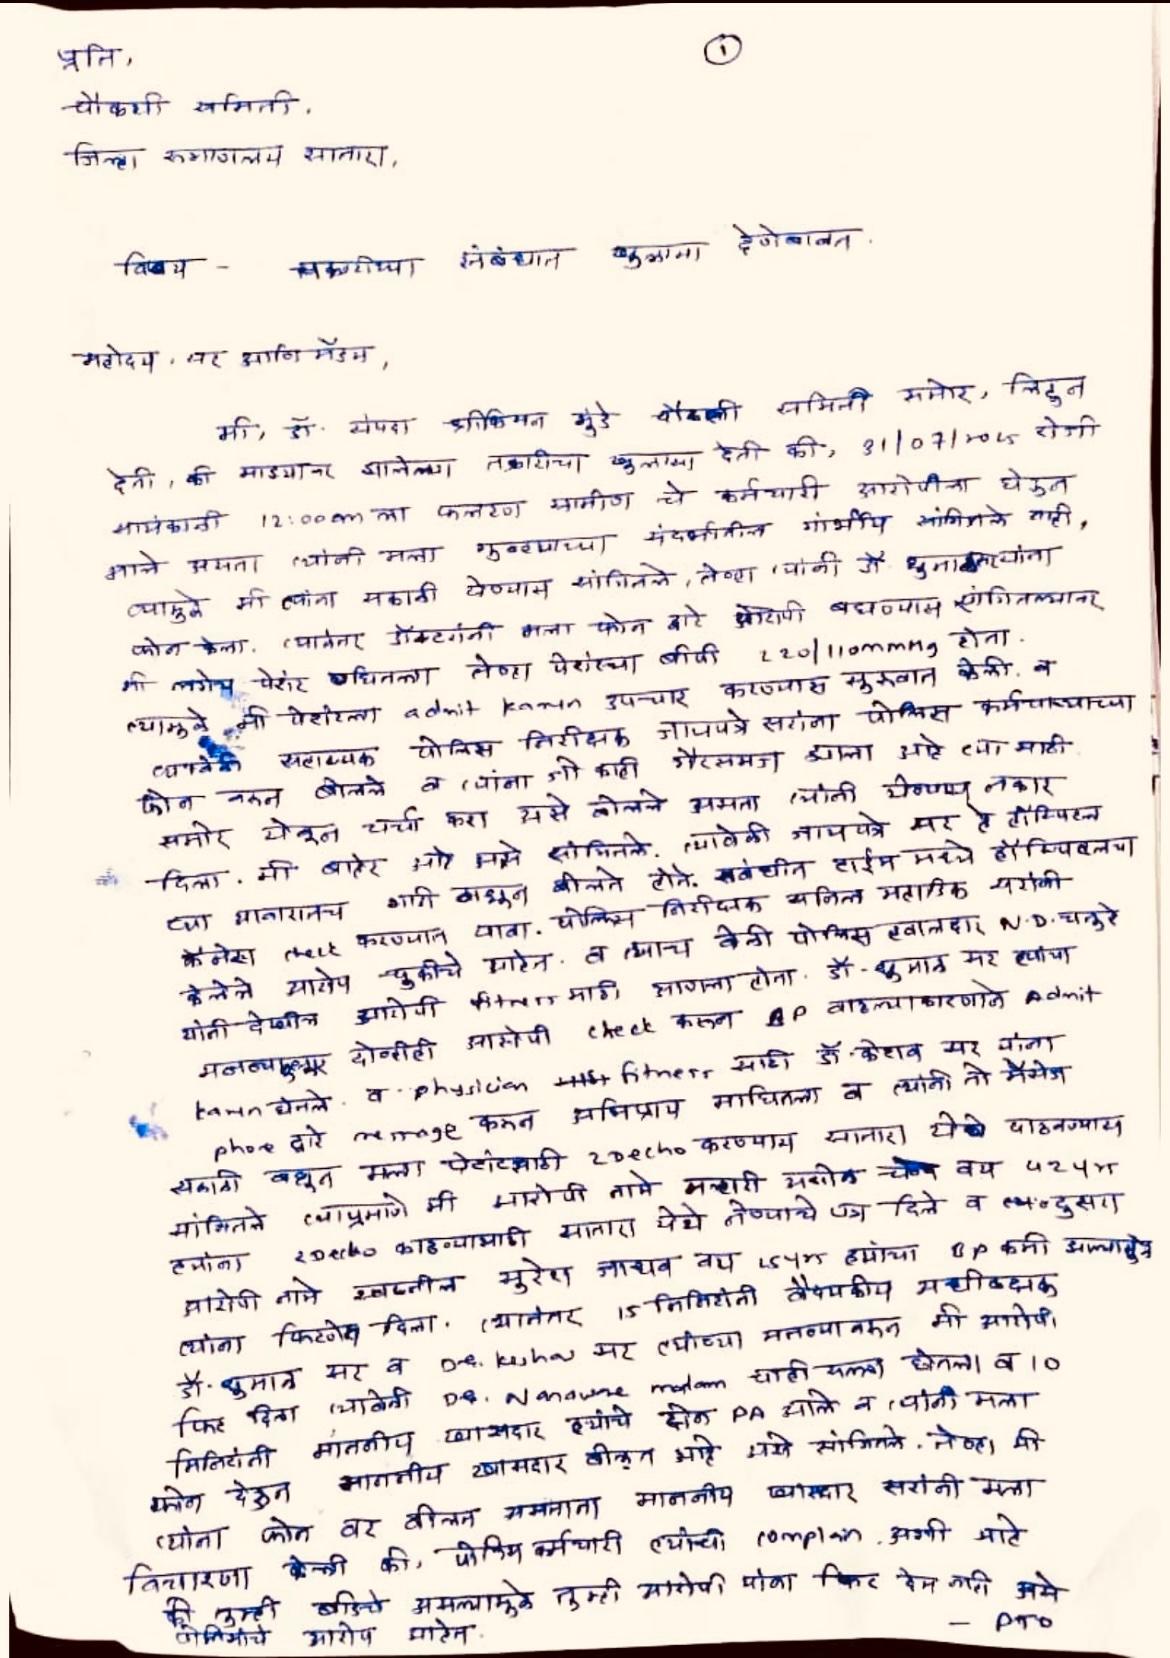 ①
प्रति,
चौकशी समिती,
जिल्हा रुग्णालय सातारा,
विषय - तक्रारीच्या संबंधात खुलासा देणेबाबत.
महोदय, सर आणि मॅडम,
मी, डॉ. संपदा मुंडे चौकशी समिती समोर, लिहून
देती, की माझ्यावर झालेल्या तक्रारीचा खुलासा देती की, 31/07/2025 रोजी
12:00am ला फलटण ग्रामीण चे कर्मचारी आरोपीला घेऊन
आले असता त्यांनी मला गुन्ह्याच्या संदर्भातील गांभीर्य सांगितले नाही,
त्यामुळे मी त्यांना सकाळी येण्यास सांगितले, तेव्हा त्यांनी डॉ. धुमाळ त्यांना
फोन केला. त्यानंतर डॉक्टरांनी मला फोन द्वारे आरोपी बघण्यास सांगितल्यानंतर
मी लगेच पेशंट बघितला तेव्हा पेशंटचा बीपी 220/110mmHg होता.
त्यामुळे मी पेशंटला admit करून उपचार करण्यास सुरुवात केली. व
सहाय्यक पोलिस निरीक्षक जायपत्रे सरांना पोलिस कर्मचाऱ्याच्या
फोन वरून बोलले व त्यांना जो काही गैरसमज झाला आहे त्या साठी
समोर येऊन चर्चा करा असे बोलले असता त्यांनी येण्यास नकार
दिला. मी बाहेर आहे असे सांगितले. त्यावेळी जायपत्रे सर हे हॉस्पिटल
च्या आवारातच गाडी बोलत होते. संबंधीत टाईम मध्ये हॉस्पिटलचा
कॅमेरा check करण्यात यावा. पोलिस निरीक्षक महाडिक सरांनी
केलेले आरोप चुकीचे आहेत. व त्याच वेळी पोलिस हवालदार N.D. चतुरे
यांनी देखील आरोपी fitness साठी आणला होता. डॉ. धुमाळ सर त्यांचा
दोन्हीही आरोपी check करून BP वाढल्याकारणाने Admit
करून घेतले. व physician fitness साठी डॉ. केशव सर यांना
phone द्वारे message करून अभिप्राय मागितला व त्यांनी तो मॅसेज
सकाळी बघून मला पेशंटसाठी 2Decho करण्यास सातारा येथे पाठवण्यास
सांगितले त्याप्रमाणे मी आरोपी नामे मल्हारी अशोक चव्हाण वय 42yr
त्यांना 2Decho काढण्यासाठी सातारा येथे नेण्याचे पत्र दिले व दुसरा
आरोपी नामे स्वप्नील सुरेश जाधव वय ह्यांचा BP कमी असल्यामुळे
त्यांना फिटनेस दिला. त्यानंतर 15 मिनिटांनी वैद्यकीय अधीक्षक
डॉ. धुमाळ सर व Dr. Keshav सर त्यांच्या मी आरोपी
फिट दिला त्यावेळी Dr. madam चाही सल्ला घेतला व 10
मिनिटांनी माननीय खासदार ह्यांचे दोन PA आले व त्यांनी मला
फोन देऊन माननीय खासदार बोलत आहे असे सांगितले. तेव्हा मी
त्यांना फोन वर बोलत असताना माननीय खासदार सरांनी मला
विचारणा केली की, पोलिस कर्मचारी त्यांची complain अशी आहे
की तुम्ही बीडचे असल्यामुळे तुम्ही आरोपी यांना फिट देत नाही असे
पोलिसांचे आरोप आहेत.
- PTO